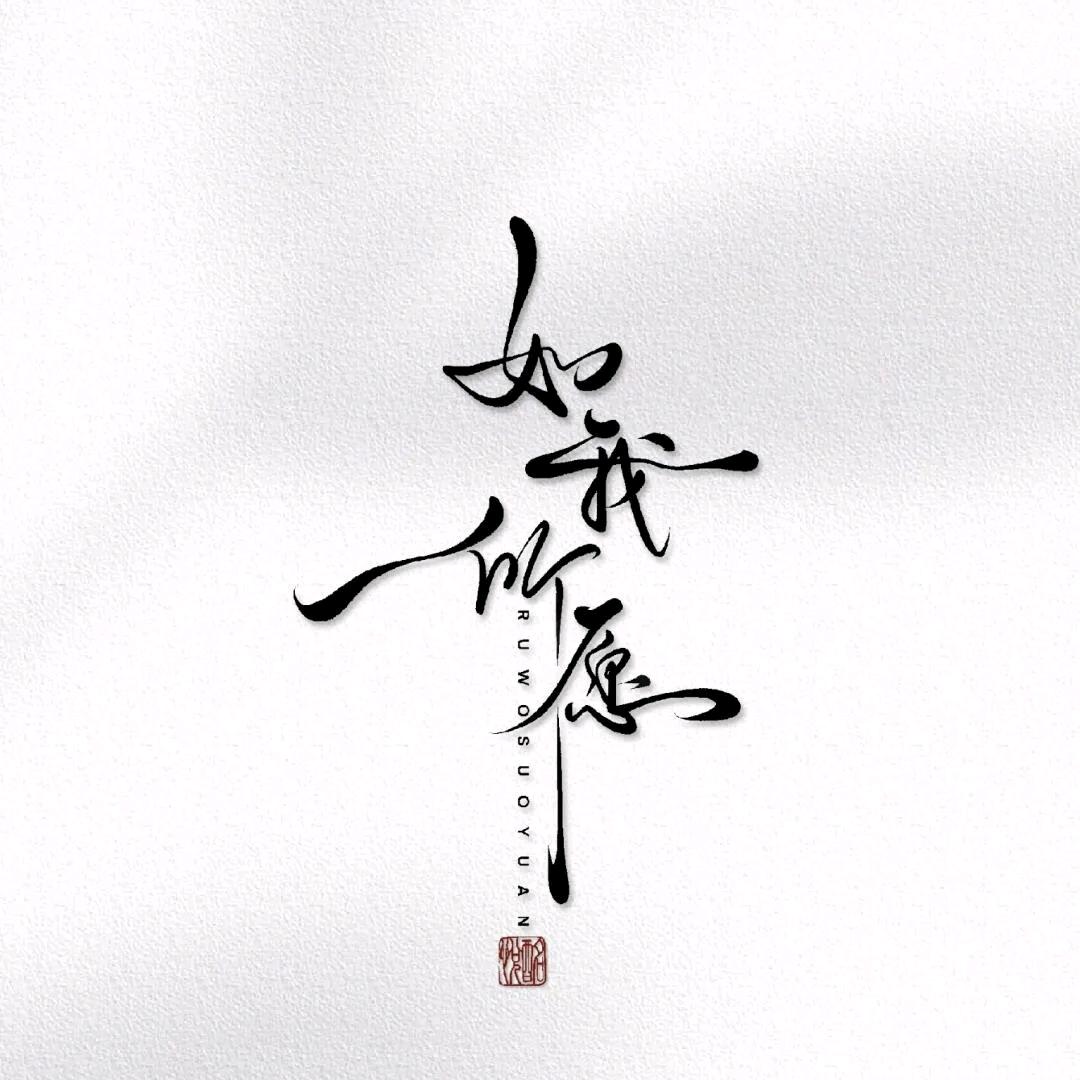 如我所愿
RUWOSUOYUAN